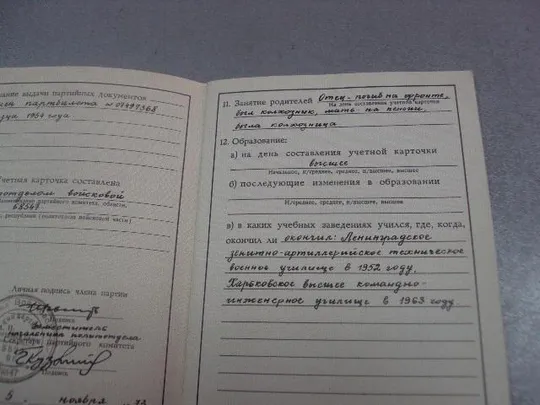 ание выдачи партийных документов
партбилета № 08497368
1954 года
четная карточка составлена
отделом войсковой
Личная подпись члена партии
Подпись
заместителя
начальника политотдела
Секретарь партийного комитета
Подпись
5 ноября
11. Занятие родителей Отец - погиб на фронте,
На день составления учетной карточки
был колхозник, мать - на пенсии,
была колхозница
12. Образование:
а) на день составления учетной карточки
высшее
Начальное, н/среднее, среднее, н/высшее, высшее
б) последующие изменения в образовании
Н/среднее, среднее, н/высшее, высшее
в) в каких учебных заведениях учился, где, когда,
окончил ли окончил: Ленинградское
зенитно-артиллерийское техническое
военное училище в 1952 году,
Харьковское высшее командно-
инженерное училище в 1963 году.